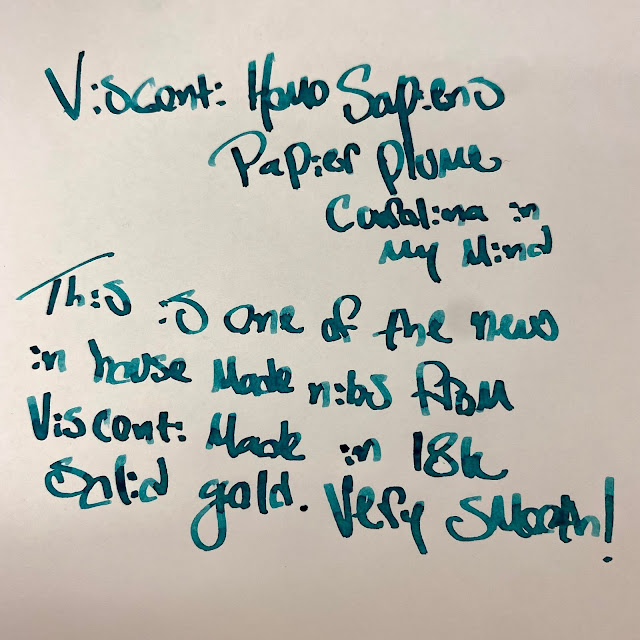 Visconti Homo Sapiens
Papier plume
Carolina in
My Mind
This is one of the new
in house Made nibs from
Visconti Made in 18k
Solid gold. Very smooth!